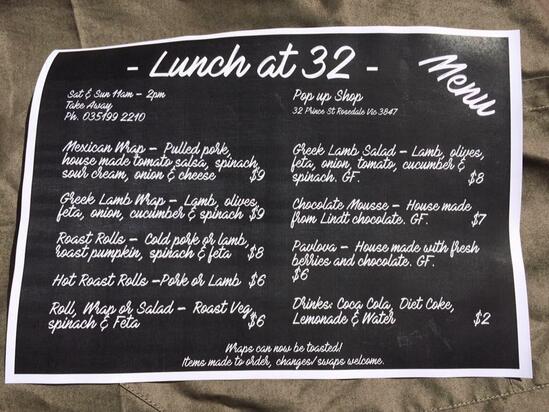 - Lunch at 32 -
Menu
Sat & Sun 11am - 2pm
Take Away
Ph. 035199 2210
Pop up Shop
32 Prince St Rosedale Vic 3847
Mexican Wrap - Pulled pork,
house made tomato salsa, spinach,
sour cream, onion & cheese $9
Greek Lamb Wrap - Lamb, olives,
feta, onion, cucumber & spinach $9
Roast Rolls - Cold pork or lamb,
roast pumpkin, spinach & feta $8
Hot Roast Rolls -Pork or Lamb $6
Roll, Wrap or Salad - Roast Veg,
spinach & Feta $6
Greek Lamb Salad - Lamb, olives,
feta, onion, tomato, cucumber &
spinach. GF. $8
Chocolate Mousse - House made
from Lindt chocolate. GF. $7
Pavlova - House made with fresh
berries and chocolate. GF.
$6
Drinks: Coca Cola, Diet Coke,
Lemonade & Water $2
Wraps can now be toasted!
Items made to order, changes/swaps welcome.